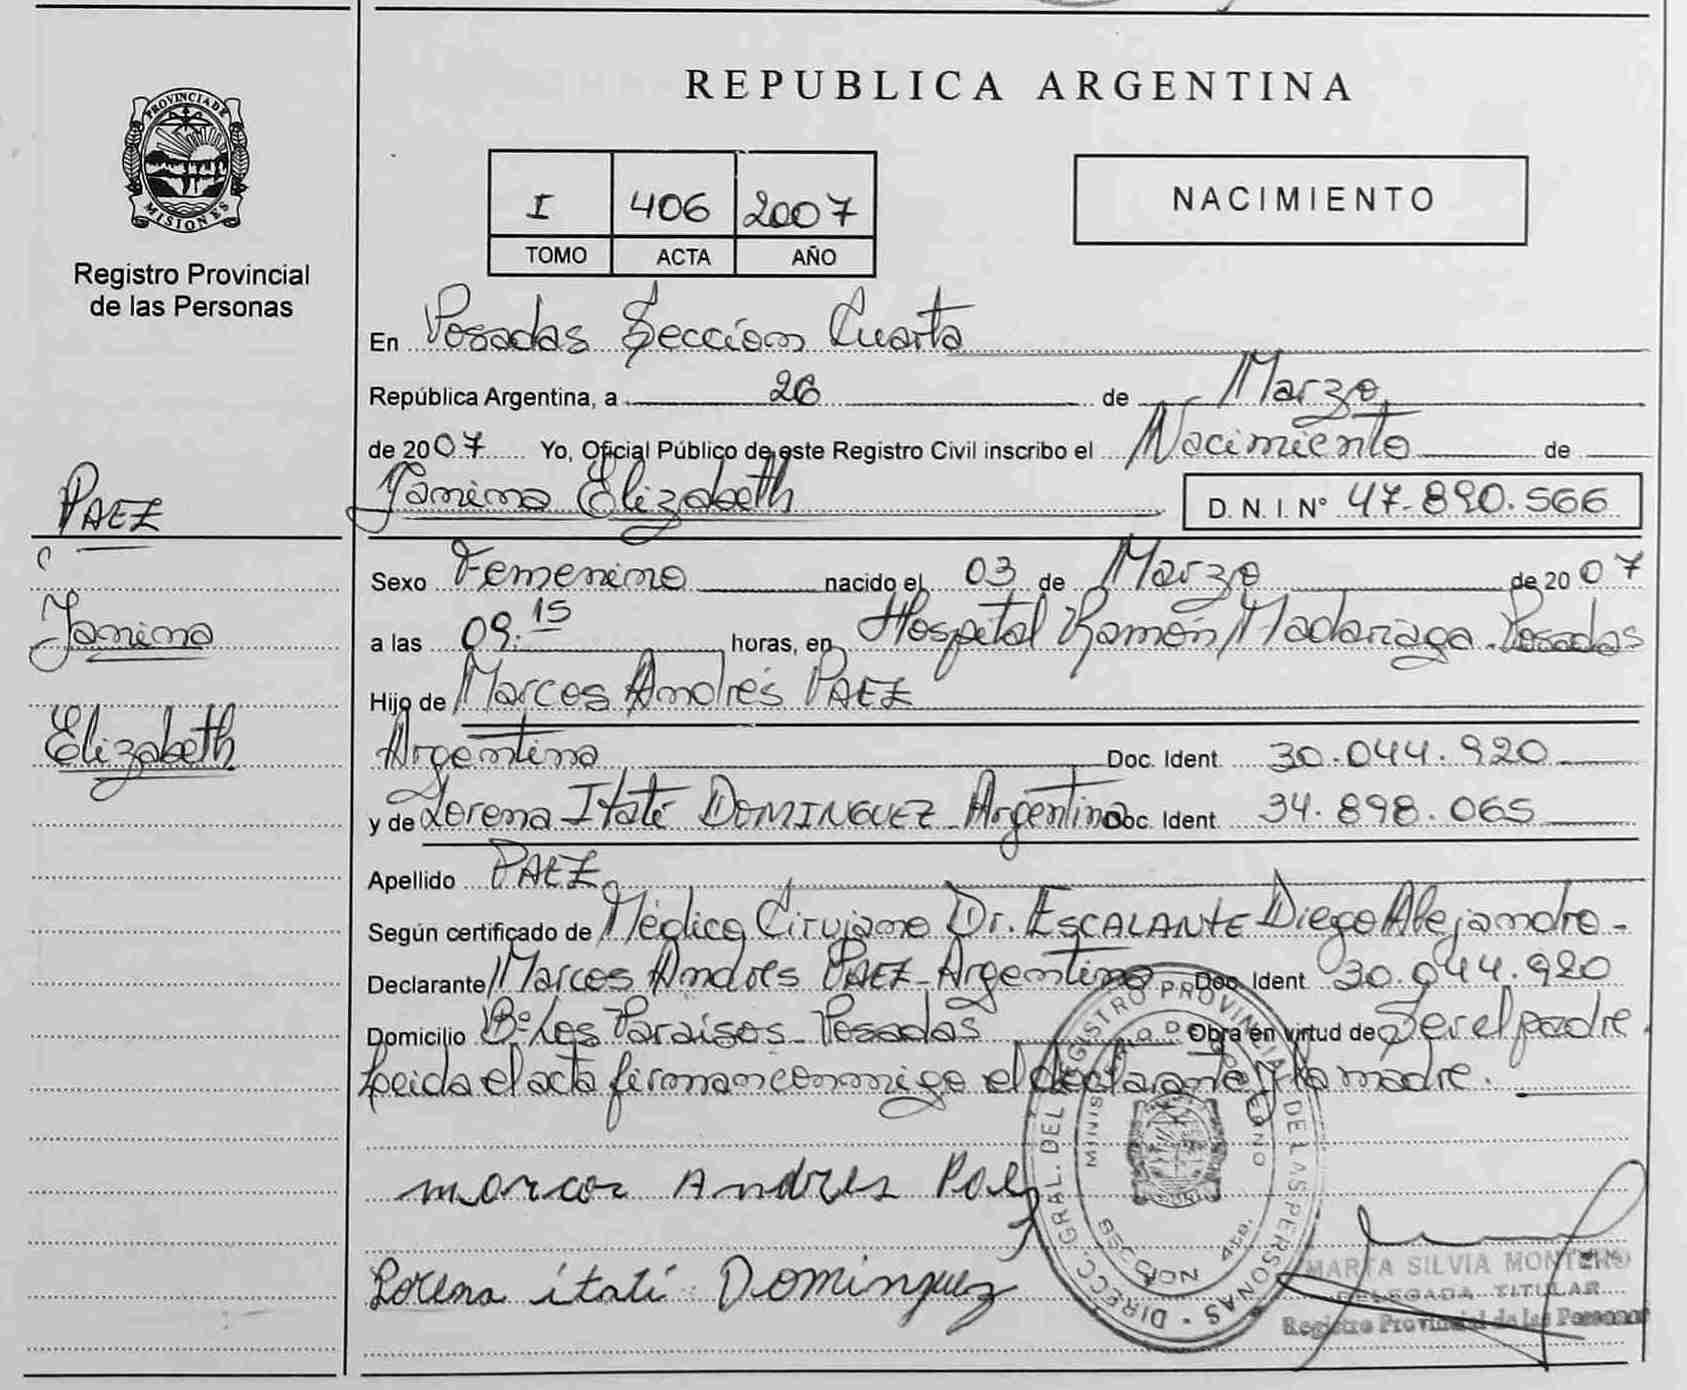 PROVINCIA DE
MISIONES
Registro Provincial
de las Personas
PAEZ
Janina
Elizabeth
REPUBLICA ARGENTINA
I 406 2007
TOMO ACTA AÑO
NACIMIENTO
En Posadas Sección Cuarta
República Argentina, a 26 de Marzo
de 2007 Yo, Oficial Público de este Registro Civil inscribo el Nacimiento de
Janina Elizabeth D. N. I. Nº 47.890.566
Sexo Femenino nacido el 03 de Marzo de 2007
a las 09:15 horas, en Hospital Ramón Madariaga - Posadas
Hijo de Marcos Andrés PAEZ
Argentino Doc. Ident. 30.044.920
y de Lorena Itatí DOMINGUEZ - Argentina Doc. Ident. 34.898.065
Apellido PAEZ
Según certificado de Médico Cirujano Dr. ESCALANTE Diego Alejandro -
Declarante Marcos Andrés PAEZ - Argentino Doc. Ident. 30.044.920
Domicilio Bº Los Paraisos - Posadas Obra en virtud de Ser el padre.
Leida el acta firman conmigo el declarante y la madre.
Marcos Andres Paez
Lorena itatí Dominguez
DIRECC. GRAL. DEL REGISTRO PROVINCIAL DE LAS PERSONAS
MARTA SILVIA MONTERO
DELEGADA TITULAR
Registro Provincial de las Personas